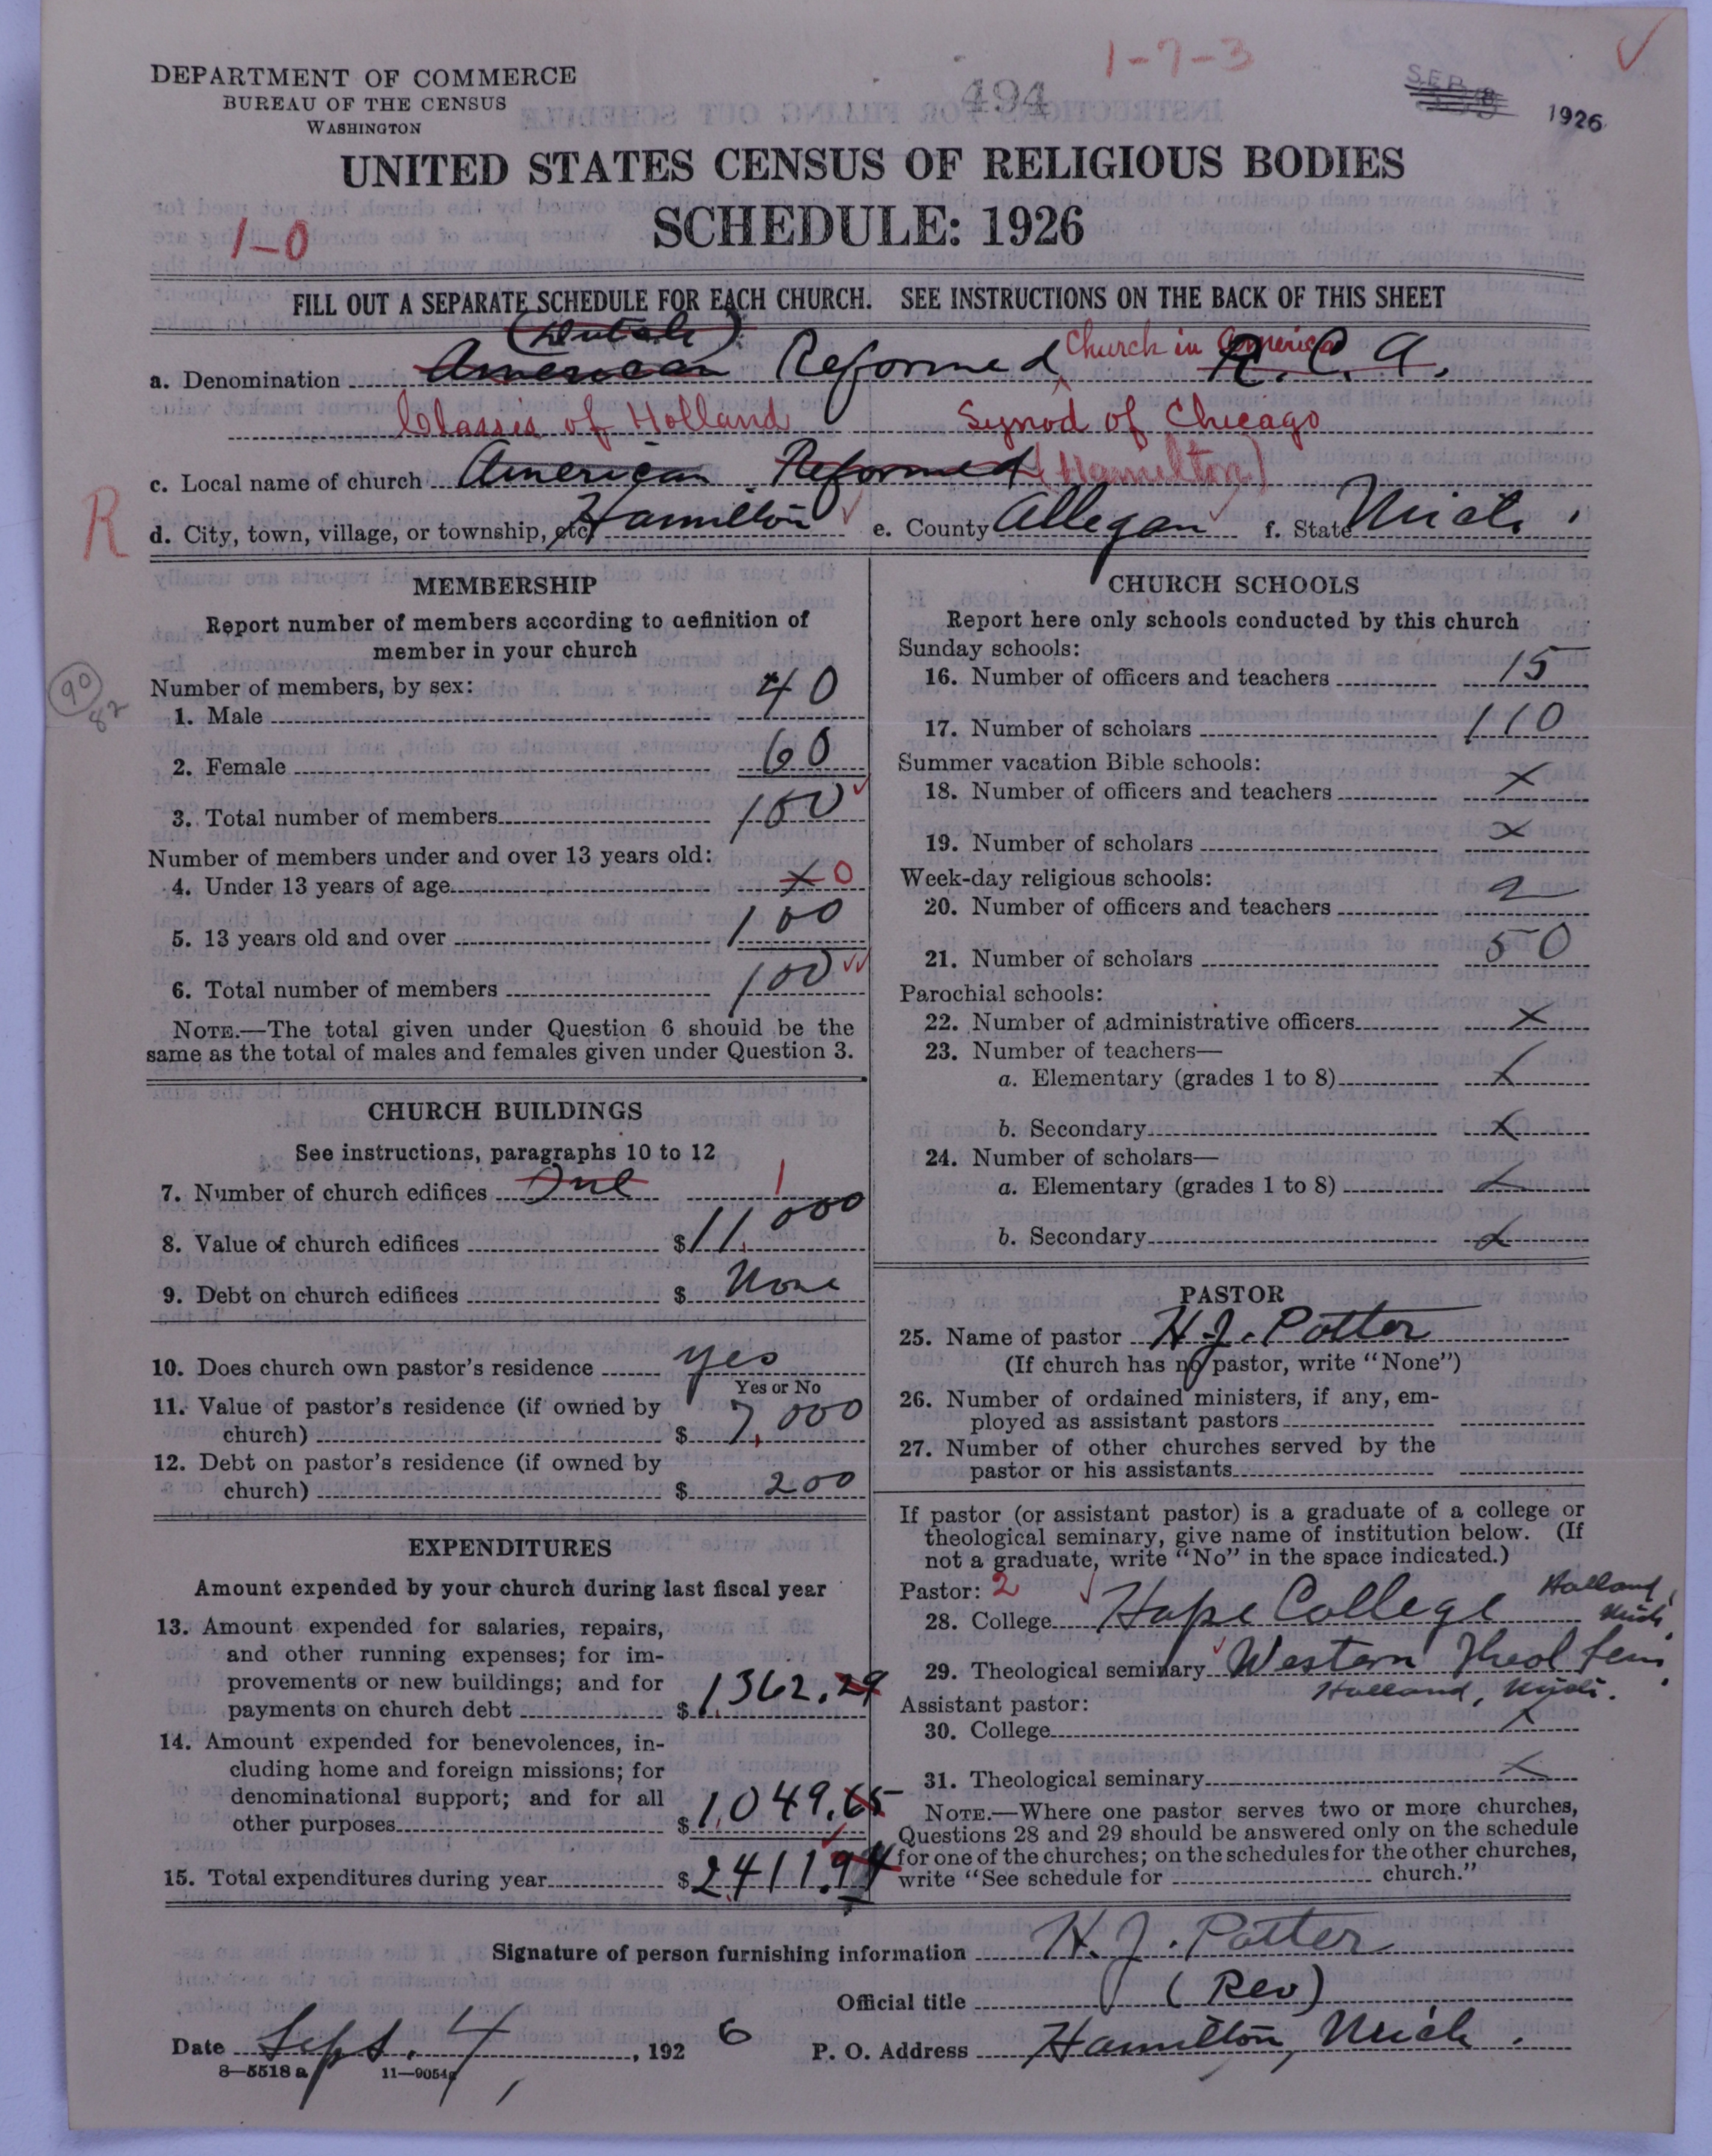 1-7-3
DEPARTMENT OF COMMERCE
BUREAU OF THE CENSUS
WASHINGTON
494
SEP 8 1926
UNITED STATES CENSUS OF RELIGIOUS BODIES
SCHEDULE: 1926
1-0
FILL OUT A SEPARATE SCHEDULE FOR EACH CHURCH. SEE INSTRUCTIONS ON THE BACK OF THIS SHEET
(Dutch)
a. Denomination American Reformed Church in America R. C. A.
Classis of Holland Synod of Chicago
c. Local name of church American Reformed (Hamilton)
R
d. City, town, village, or township, etc. Hamilton e. County Allegan f. State Mich.
MEMBERSHIP
Report number of members according to definition of
member in your church
90
82
Number of members, by sex:
1. Male 40
2. Female 60
3. Total number of members 100
Number of members under and over 13 years old:
4. Under 13 years of age x 0
5. 13 years old and over 100
6. Total number of members 100
NOTE.—The total given under Question 6 should be the
same as the total of males and females given under Question 3.
CHURCH BUILDINGS
See instructions, paragraphs 10 to 12
7. Number of church edifices One 1
8. Value of church edifices $11,000
9. Debt on church edifices $ None
10. Does church own pastor's residence yes
Yes or No
11. Value of pastor's residence (if owned by
church) $ 7,000
12. Debt on pastor's residence (if owned by
church) $ 200
EXPENDITURES
Amount expended by your church during last fiscal year
13. Amount expended for salaries, repairs,
and other running expenses; for im-
provements or new buildings; and for
payments on church debt $1,362.29
14. Amount expended for benevolences, in-
cluding home and foreign missions; for
denominational support; and for all
other purposes $1,049.65
15. Total expenditures during year $2,411.94
CHURCH SCHOOLS
Report here only schools conducted by this church
Sunday schools:
16. Number of officers and teachers 15
17. Number of scholars 110
Summer vacation Bible schools:
18. Number of officers and teachers x
19. Number of scholars x
Week-day religious schools:
20. Number of officers and teachers 2
21. Number of scholars 50
Parochial schools:
22. Number of administrative officers x
23. Number of teachers—
a. Elementary (grades 1 to 8) x
b. Secondary x
24. Number of scholars—
a. Elementary (grades 1 to 8) x
b. Secondary x
PASTOR
25. Name of pastor H. J. Potter
(If church has no pastor, write "None")
26. Number of ordained ministers, if any, em-
ployed as assistant pastors
27. Number of other churches served by the
pastor or his assistants
If pastor (or assistant pastor) is a graduate of a college or
theological seminary, give name of institution below. (If
not a graduate, write "No" in the space indicated.)
Pastor: 2
28. College Hope College Holland, Mich.
29. Theological seminary Western Theol Sem.
Holland, Mich.
Assistant pastor:
30. College x
31. Theological seminary x
NOTE.—Where one pastor serves two or more churches,
Questions 28 and 29 should be answered only on the schedule
for one of the churches; on the schedules for the other churches,
write "See schedule for church."
Signature of person furnishing information H. J. Potter
Official title (Rev)
Date Sept. 4, 1926 P. O. Address Hamilton, Mich.
8—5518 a 11—9054